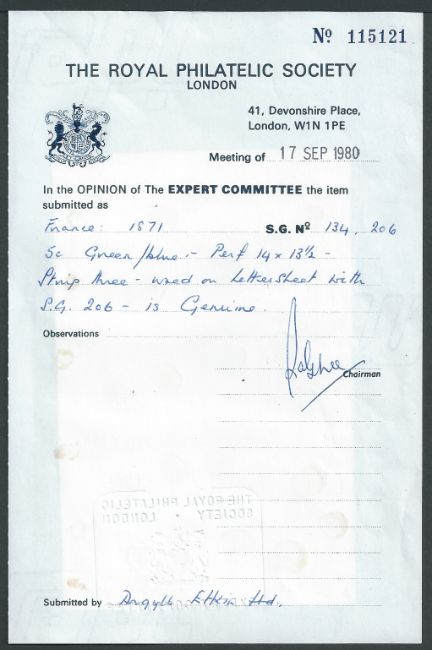 Nº 115121
THE ROYAL PHILATELIC SOCIETY
LONDON
41, Devonshire Place,
London, W1N 1PE
Meeting of 17 SEP 1980
In the OPINION of The EXPERT COMMITTEE the item
submitted as
France: 1871 S.G. Nº 134, 206
5c Green/blue :- Perf 14 x 13½ -
Strip three - used on lettersheet with
S.G. 206 - is Genuine.
Observations
Chairman
THE ROYAL PHILATELIC
SOCIETY • LONDON
Submitted by Argyll Etkin Ltd.